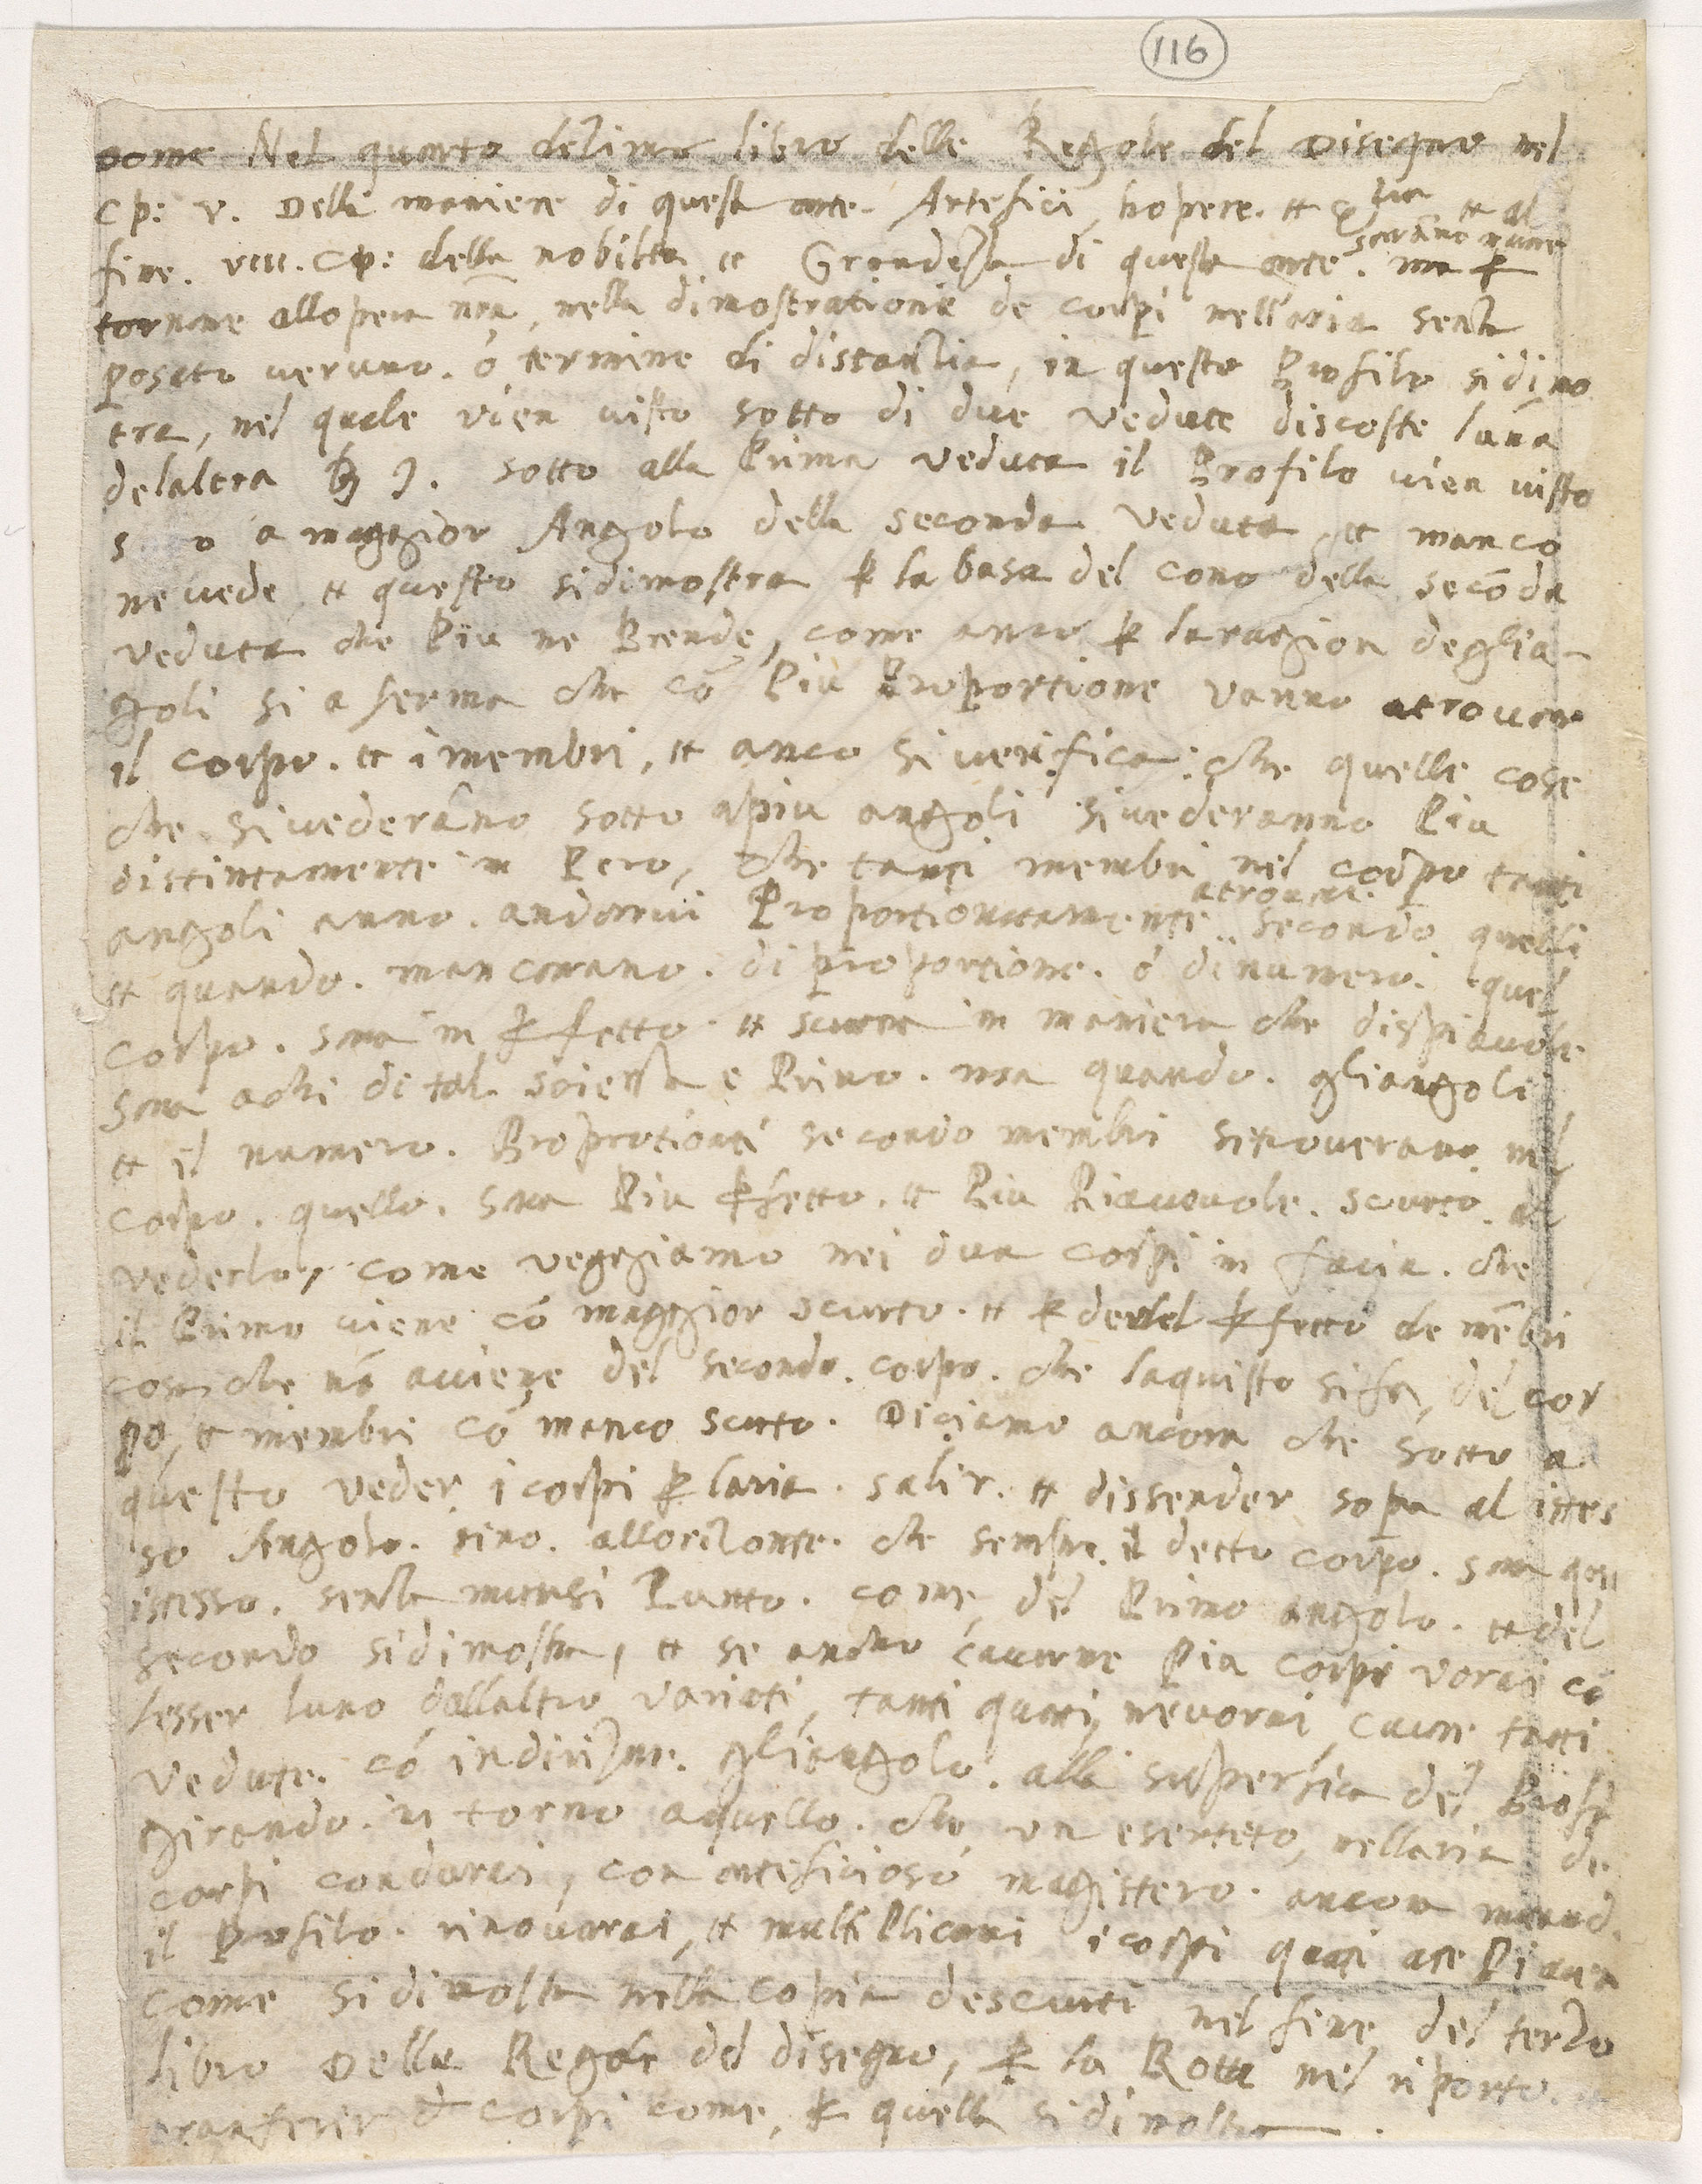 116
come Nel quarto et ultimo libro delle Regole del Disegno nel
cp: v. Della maniere di quest arte. Artefici, hopere. et al
fine. viii. cp: della nobilta et Grandeza di questa arte. ma ꝑ
tornare allopera nr̃a, nella dimostratione de corpi nell'aria senza
posato veruno. ó termine di distanzia, in questo Profilo si dimo
tra, nel quale vien visto sotto di due vedute discoste luna
delaltra sotto alla Prima veduta il Profilo vien visto
a maggior Angolo della seconda veduta, et manco
ne vede, et questo si dimostra ꝑ la basa del cono della secōda
veduta che Piu ne Prende, come anco ꝑ la ragion deglia-
goli si aferma che cō Piu Proportione vanno atrovar
il corpo. et i membri, et anco si verifica: che quelle cose
che si vederāno sotto apiu angoli si vederanno Piu
distintamente Pero, che tanti membri nel corpo tanti
atrovare.
angoli anno. andarvi Proportionatamente secondo quelli
et quando. mancarano. di proportione. ó di numero. quel
corpo. sara in ꝑfetto et scurra in maniera che dispiavole
sara a chi di tal. scienza e Privo. ma quando. gliangoli
et il numero. Proprotionati secondo membri si troverano nel
corpo. quello. sara Piu ꝑfetto. et Piu Piacevole. scurto. al
vederlo, come veggiamo nei dua corpi in facia. che
il Primo viene cō maggior scurto. et ꝑ ꝑfetto de mēbri
cosi che nō aviene del secondo. corpo. che laquisto si fa, del cor
po, et membri cō manco scurto. Diciamo ancora che sotto a
questo veder, i corpi ꝑ laria. salir. et dissender sopra al istes
so Angolo. sino. allorizonte. che sempre. il detto corpo. sara
istesso. senza mutarsi Punto. come, del Primo angolo. et del
secondo si dimostra, et se anchor cavarne Piu corpi vorai cō
lesser luno dallaltro variati, tanti quati, ne vorai, cavare tanti
vedute. cō indirizare. gliangolo. alla superfica del Profi
girando. in torno a quello. che un eserceto, nellaria di
corpi condurai, con arteficioso magistero. ancora
il Profilo. rinovarai, et multiplicarai i corpi quati a te Piacera
come si dimostra nella copia descurti nel fine, del terzo
libro Delle Regole del disegno, ꝑ la Rotta nel riporto.
tranferir de corpi come, ꝑ quella si dimostra.